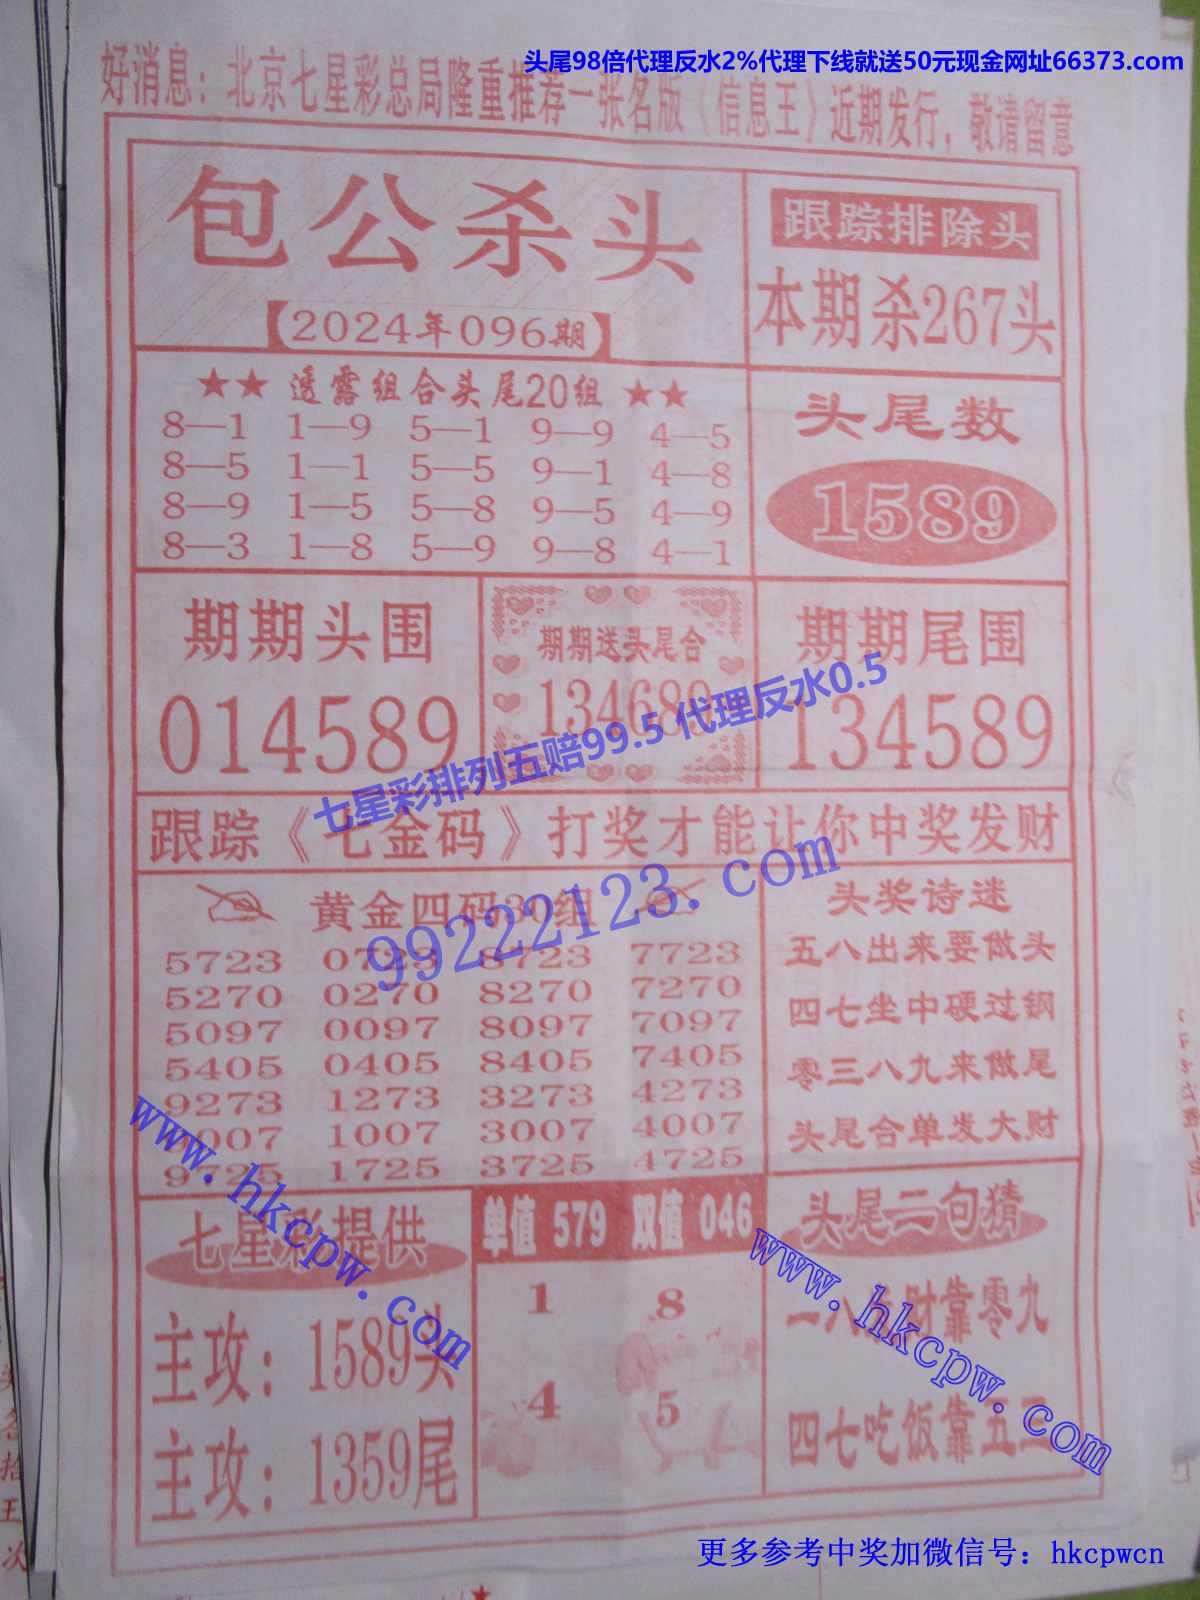 头尾98倍代理反水2%代理下线就送50元现金网址66373.com
好消息：北京七星彩总局隆重推荐一张名版《信息王》近期发行，敬请留意
包公杀头
【2024年096期】
跟踪排除头
本期杀267头
★★ 透露组合头尾20组 ★★
8—1 1—9 5—1 9—9 4—5
8—5 1—1 5—5 9—1 4—8
8—9 1—5 5—8 9—5 4—9
8—3 1—8 5—9 9—8 4—1
头尾数
1589
期期头围
014589
期期送头尾合
134689
期期尾围
134589
七星彩排列五赔99.5 代理反水0.5
跟踪《七金码》打奖才能让你中奖发财
99222123.com
黄金四码 组
5723 0723 8723 7723
5270 0270 8270 7270
5097 0097 8097 7097
5405 0405 8405 7405
9273 1273 3273 4273
007 1007 3007 4007
9725 1725 3725 4725
头奖诗迷
五八出来要做头
四七坐中硬过钢
零三八九来做尾
头尾合单发大财
www.hkcpw.com
七星彩提供
主攻：1589头
主攻：1359尾
单值 579 双值 046
1 8
4 5
头尾二句猜
一八 财靠零九
四七吃饭靠五三
www.hkcpw.com
更多参考中奖加微信号：hkcpwcn